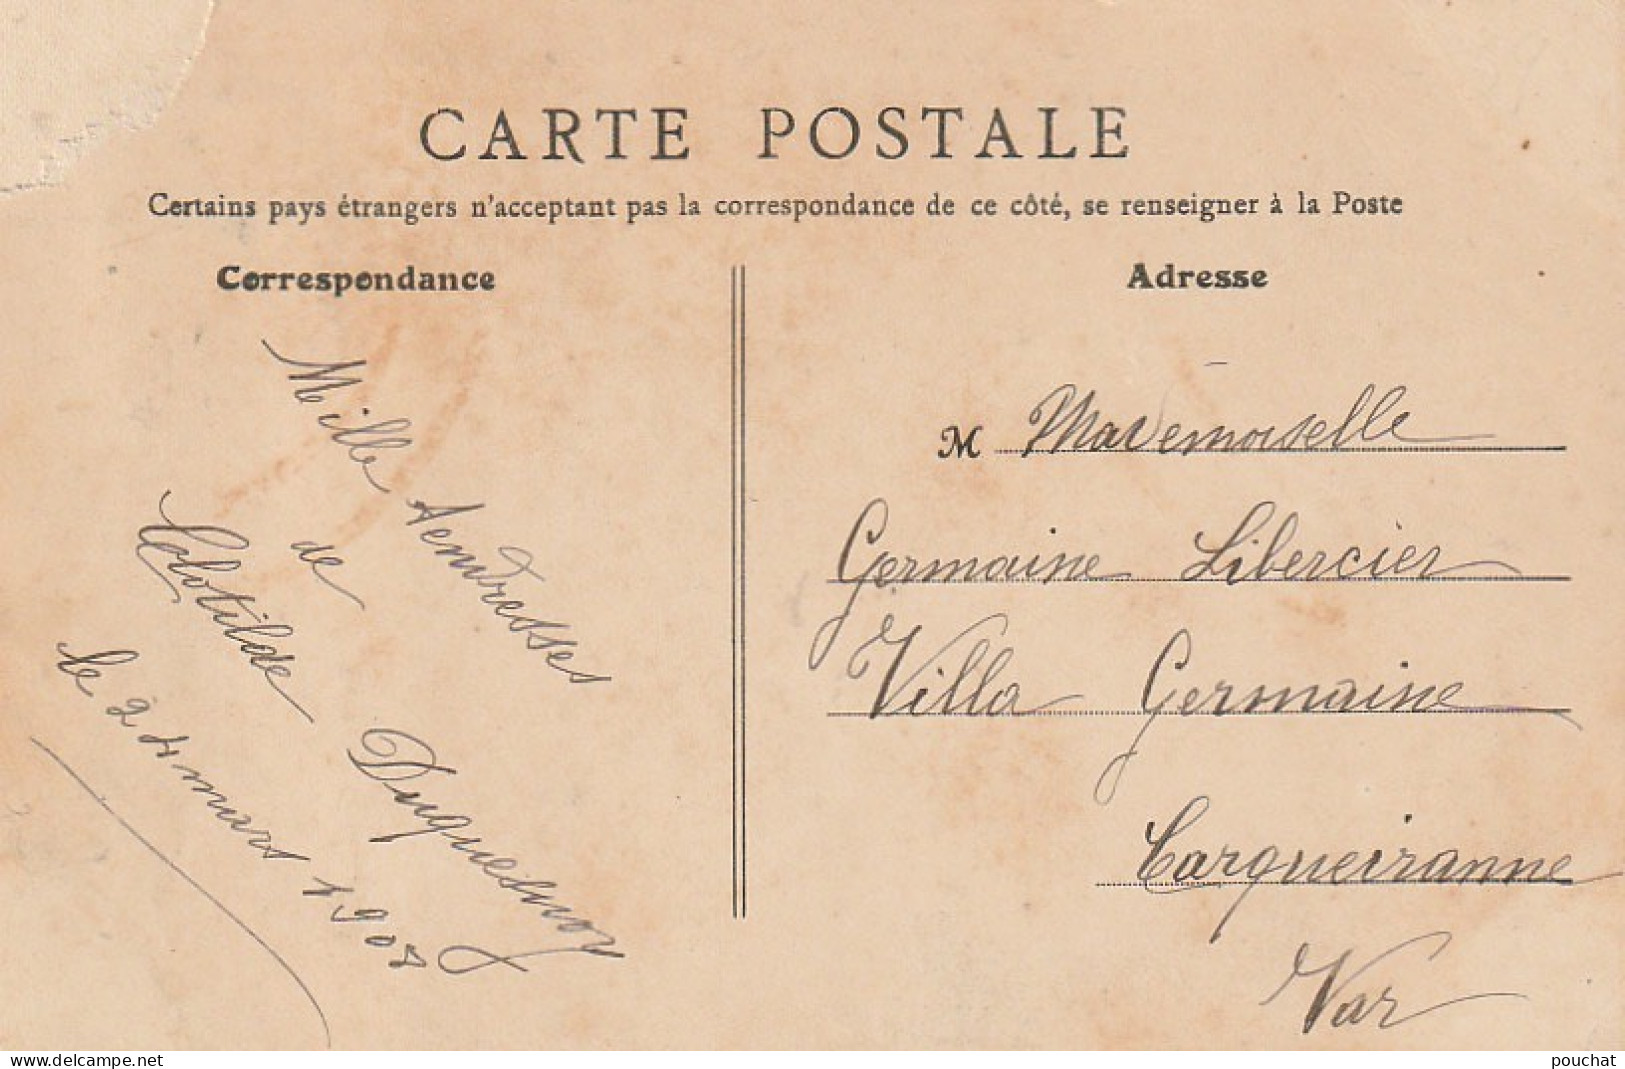 CARTE POSTALE
Certains pays étrangers n'acceptant pas la correspondance de ce côté, se renseigner à la Poste
Correspondance
Mille tendresses
de
Clotilde Duquesnoy
le 24 mars 1908
Adresse
M Mademoiselle
Germaine Libercier
Villa Germaine
Carqueiranne
Var
www.delcampe.net
pouchat